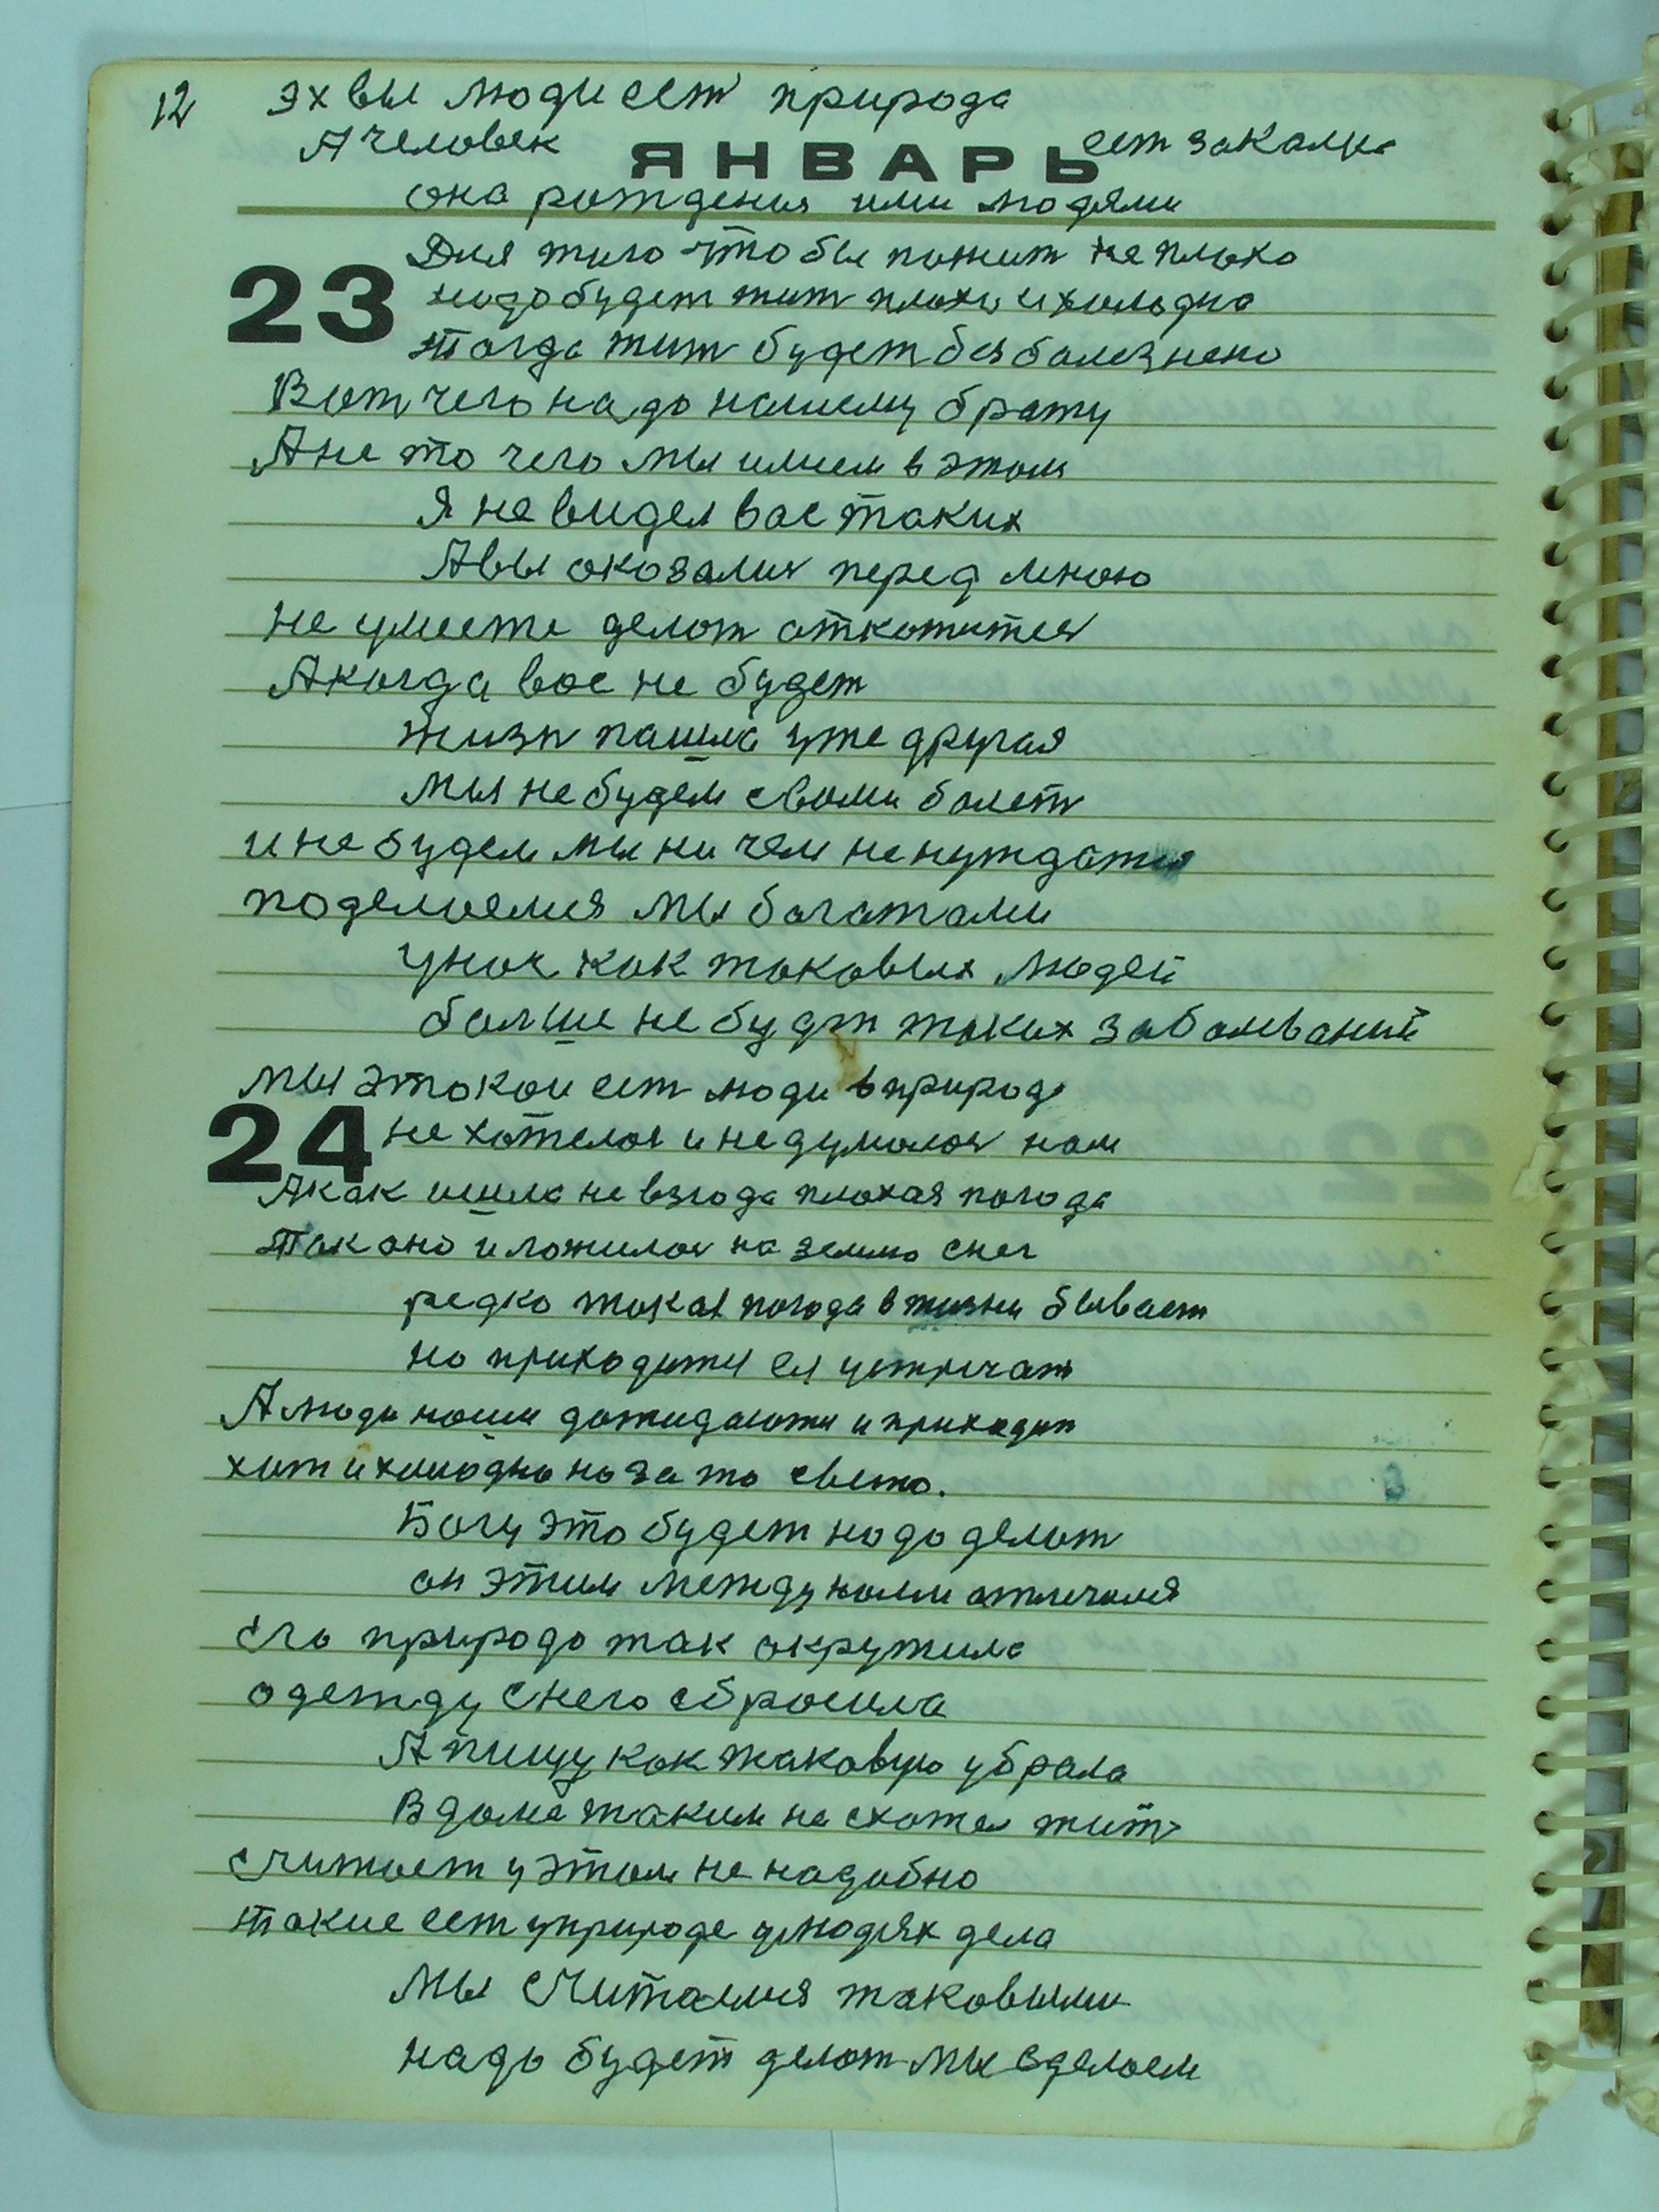 12 эх вы люди ест природа
А человек ест закалка
ЯНВАРЬ
она рождения ими людями
Для того что бы пожит не плохо
23 надо будет жит плохо и холодно
тогда жит будет без болезнено
Вот чего надо нашему брату
А не то чего мы имеем в этом
Я не видел вас таких
А вы оказалис перед мною
не умеете делат откотится
А когда вас не будет
жизн пашла уже другая
мы не будем свами болет
и не будем мы ни чем не нуждатся
поделаемся мы богатами
у нас как таковых людей
болше не будт таких заболеваний
мы этакои ест люди в природе
24 не хотелос и не думалос нам
А как ишла не взгода плохая погода
так оно и ложилос на землю снег
редко такая погода в жизни бывает
но приходится ея устречат
А люди наши дожидаются и приходит
хот и холодно но за то светло.
Богу это будет надо делат
он этим между нами отличался
его природа так окружила
одежду с него сбросила
А пищу как таковую убрала
В доме таким не схотел жит
считает у этом не надобно
такие ест у природе у людях дела
мы считаимся таковыми
надо будет делат мы сделаем